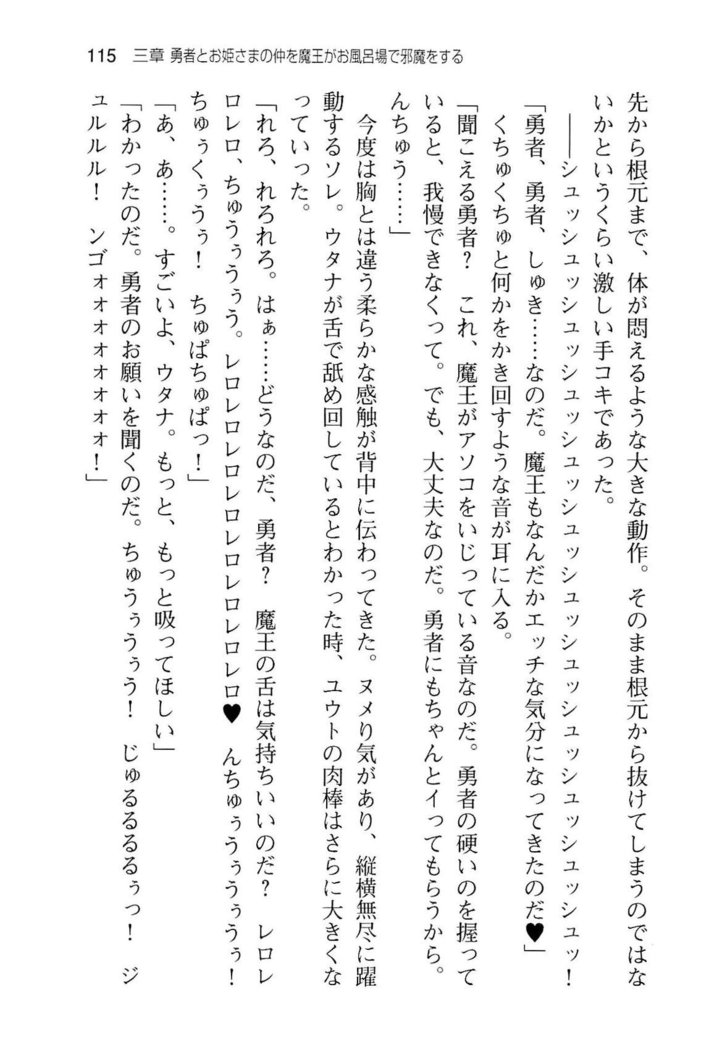 115 三章 勇者とお姫さまの仲を魔王がお風呂場で邪魔をする
先から根元まで、体が悶えるような大きな動作。そのまま根元から抜けてしまうのではな
いかというくらい激しい手コキであった。
――シュッシュッシュッシュッシュッシュッシュッシュッシュッシュッシュッ！
「勇者、勇者、しゅき……なのだ。魔王もなんだかエッチな気分になってきたのだ♥」
くちゅくちゅと何かをかき回すような音が耳に入る。
「聞こえる勇者？　これ、魔王がアソコをいじっている音なのだ。勇者の硬いのを握って
いると、我慢できなくって。でも、大丈夫なのだ。勇者にもちゃんとイってもらうから。
んちゅう……」
今度は胸とは違う柔らかな感触が背中に伝わってきた。ヌメり気があり、縦横無尽に躍
動するソレ。ウタナが舌で舐め回しているとわかった時、ユウトの肉棒はさらに大きくな
っていった。
「れろ、れろれろ。はぁ……どうなのだ、勇者？　魔王の舌は気持ちいいのだ？　レロレ
ロレロ、ちゅうぅうぅう。レロレロレロレロレロレロレロレロ♥　んちゅぅうぅうぅうぅ！
ちゅぅくぅうぅ！　ちゅぱちゅぱっ！」
「あ、あ……。すごいよ、ウタナ。もっと、もっと吸ってほしい」
「わかったのだ。勇者のお願いを聞くのだ。ちゅうぅうぅう！　じゅるるるるぅっ！　ジ
ュルルル！　ンゴォォォォォォォォ！」